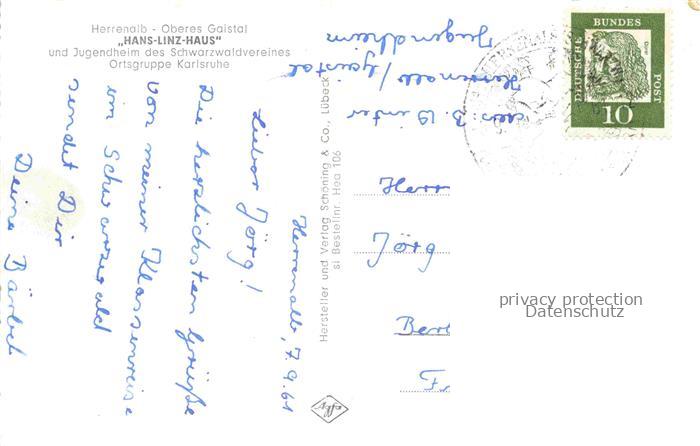 Herrenalb - Oberes Gaistal
„HANS-LINZ-HAUS"
und Jugendheim des Schwarzwaldvereines
Ortsgruppe Karlsruhe
Herrenalb, 7.9.61
Lieber Jörg!
Die herzlichsten Grüße
von meiner Klassenreise
im Schwarzwald
sendet Dir
Deine Bärbel
Hersteller und Verlag Schöning & Co., Lübeck
si Bestellnr. Hea 106
abs. B.
Herrenalb/Gaistal
Jugendheim
DEUTSCHE
BUNDES
POST
Dürer
10
Herrn
Jörg
privacy protection
Datenschutz